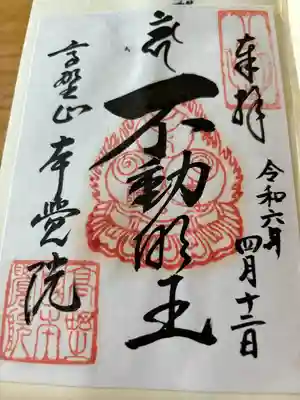 奉拝
令和六年
四月十二日
不動明王
高野山 本覚院